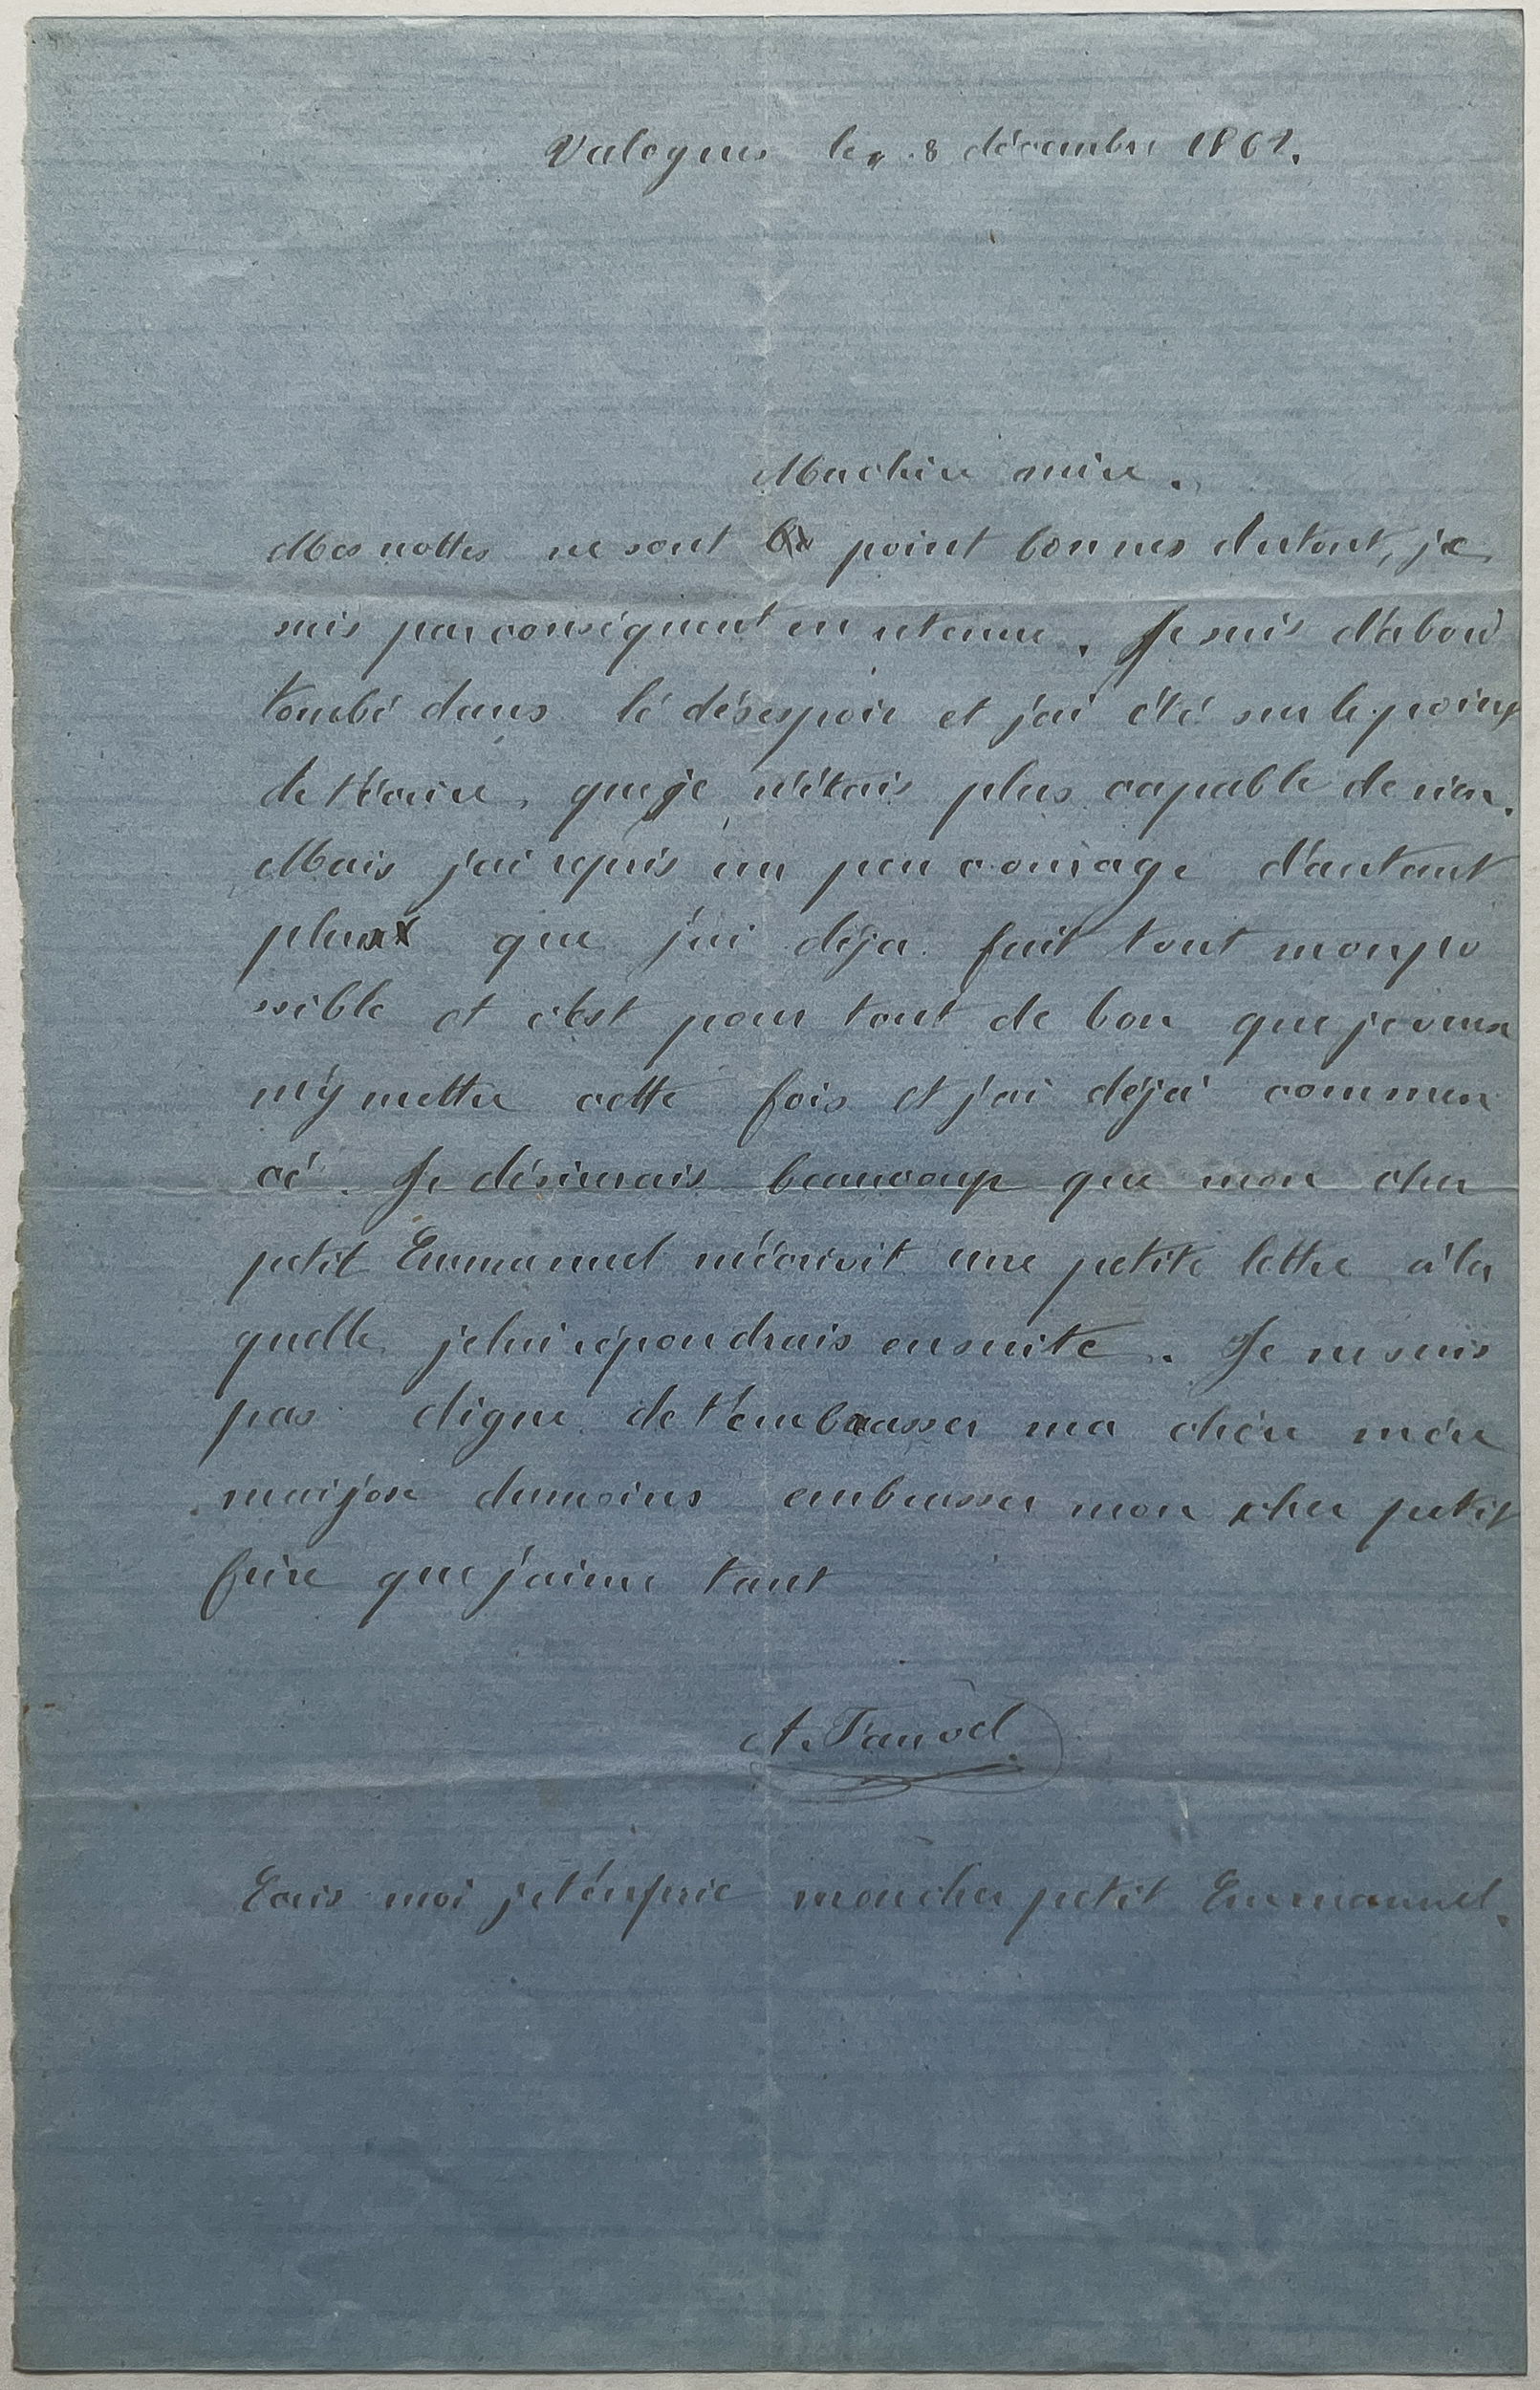 Valognes le 8 décembre 1861.
Ma chère mère.
Mes nottes ne sont point bonnes dutout, je
suis par conséquent en retenue. Je suis d'abord
tombé dans le désespoir et j'ai été sur le point
de t'écrire, que je n'étais plus capable de rien.
Mais j'ai repris un peu courage d'autant
plus que j'ai déja fait tout mon po
ssible et c'est pour tout de bon que je veux
m'y mettre cette fois et j'ai déjà commen
cé. Je désirerais beaucoup que mon cher
petit Emmanuel m'écrivit une petite lettre à la
quelle je lui répondrais ensuite. Je ne suis
pas digne de t'embrasser ma chère mère
mais j'ose dumoins embrasser mon cher petit
frère que j'aime tant
A.
Ecris moi je t'en prie mon cher petit Emmanuel.